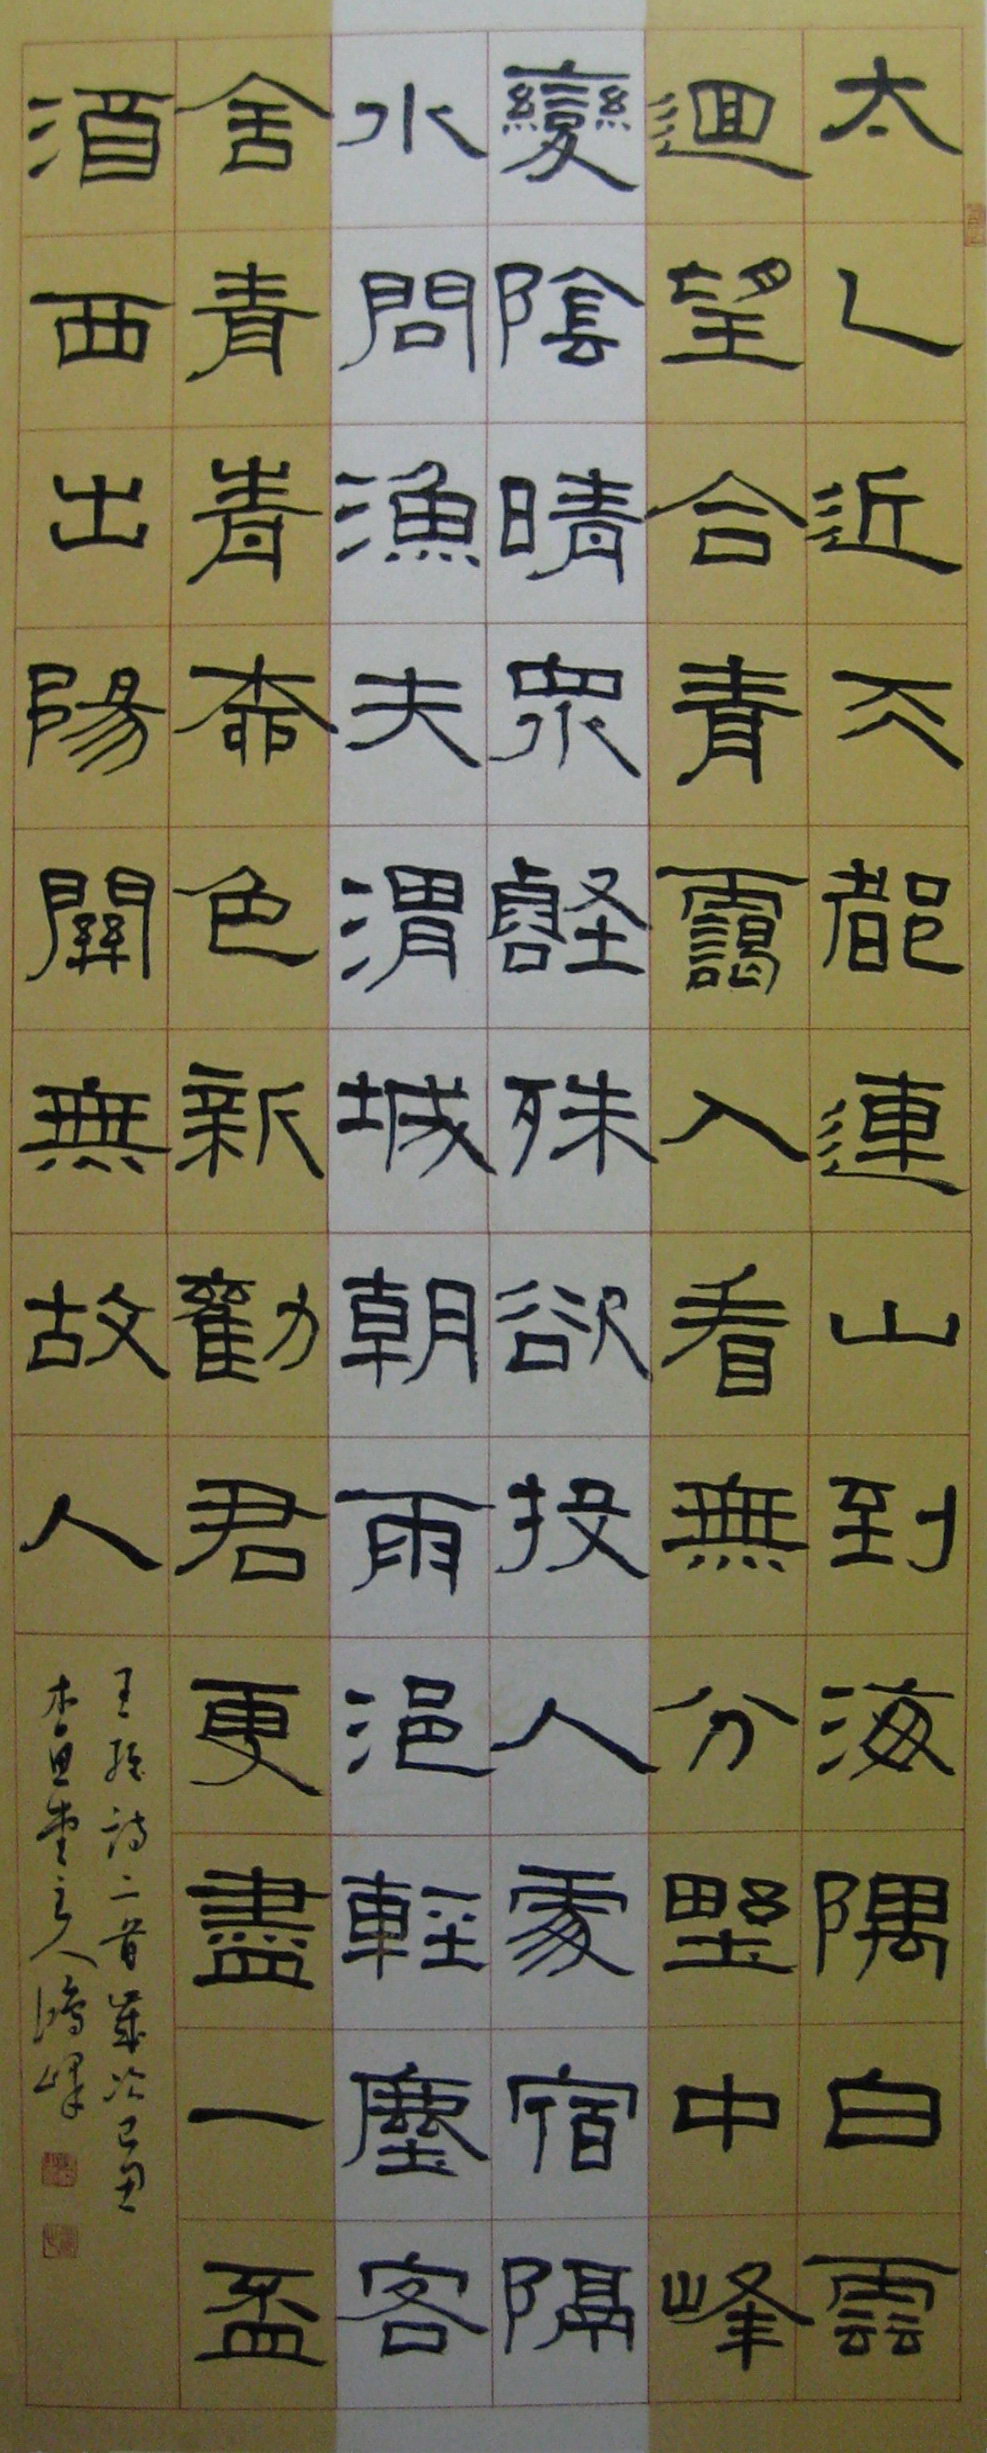 太乙近天都連山到海隅白雲
迴望合青靄入看無分野中峰
變陰晴眾壑殊欲投人處宿隔
水問漁夫渭城朝雨浥輕塵客
舍青青柰色新勸君更盡一盃
酒西出陽關無故人
王維詩二首歲次己丑
杏思堂主人鴻嶧